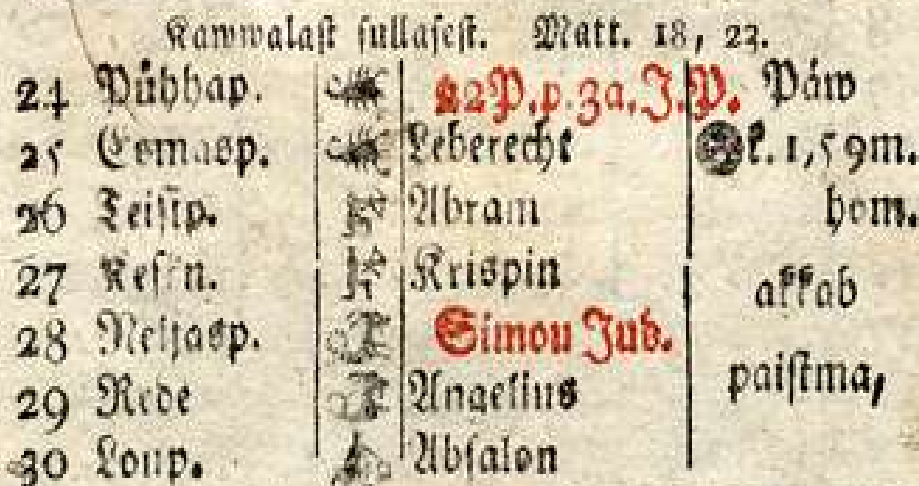 Kawwalast sullasest. Matt. 18, 23.
24 Pühhap. 22 P. p. 3a. J. P. Päw
25 Esmasp. Leberecht k. 1, 59m.
26 Teisip. Abram hom.
27 Kesn. Krispin
akkab
28 Neljasp. Simon Jud.
29 Rede Angelius paistma,
30 Loup. Absalon